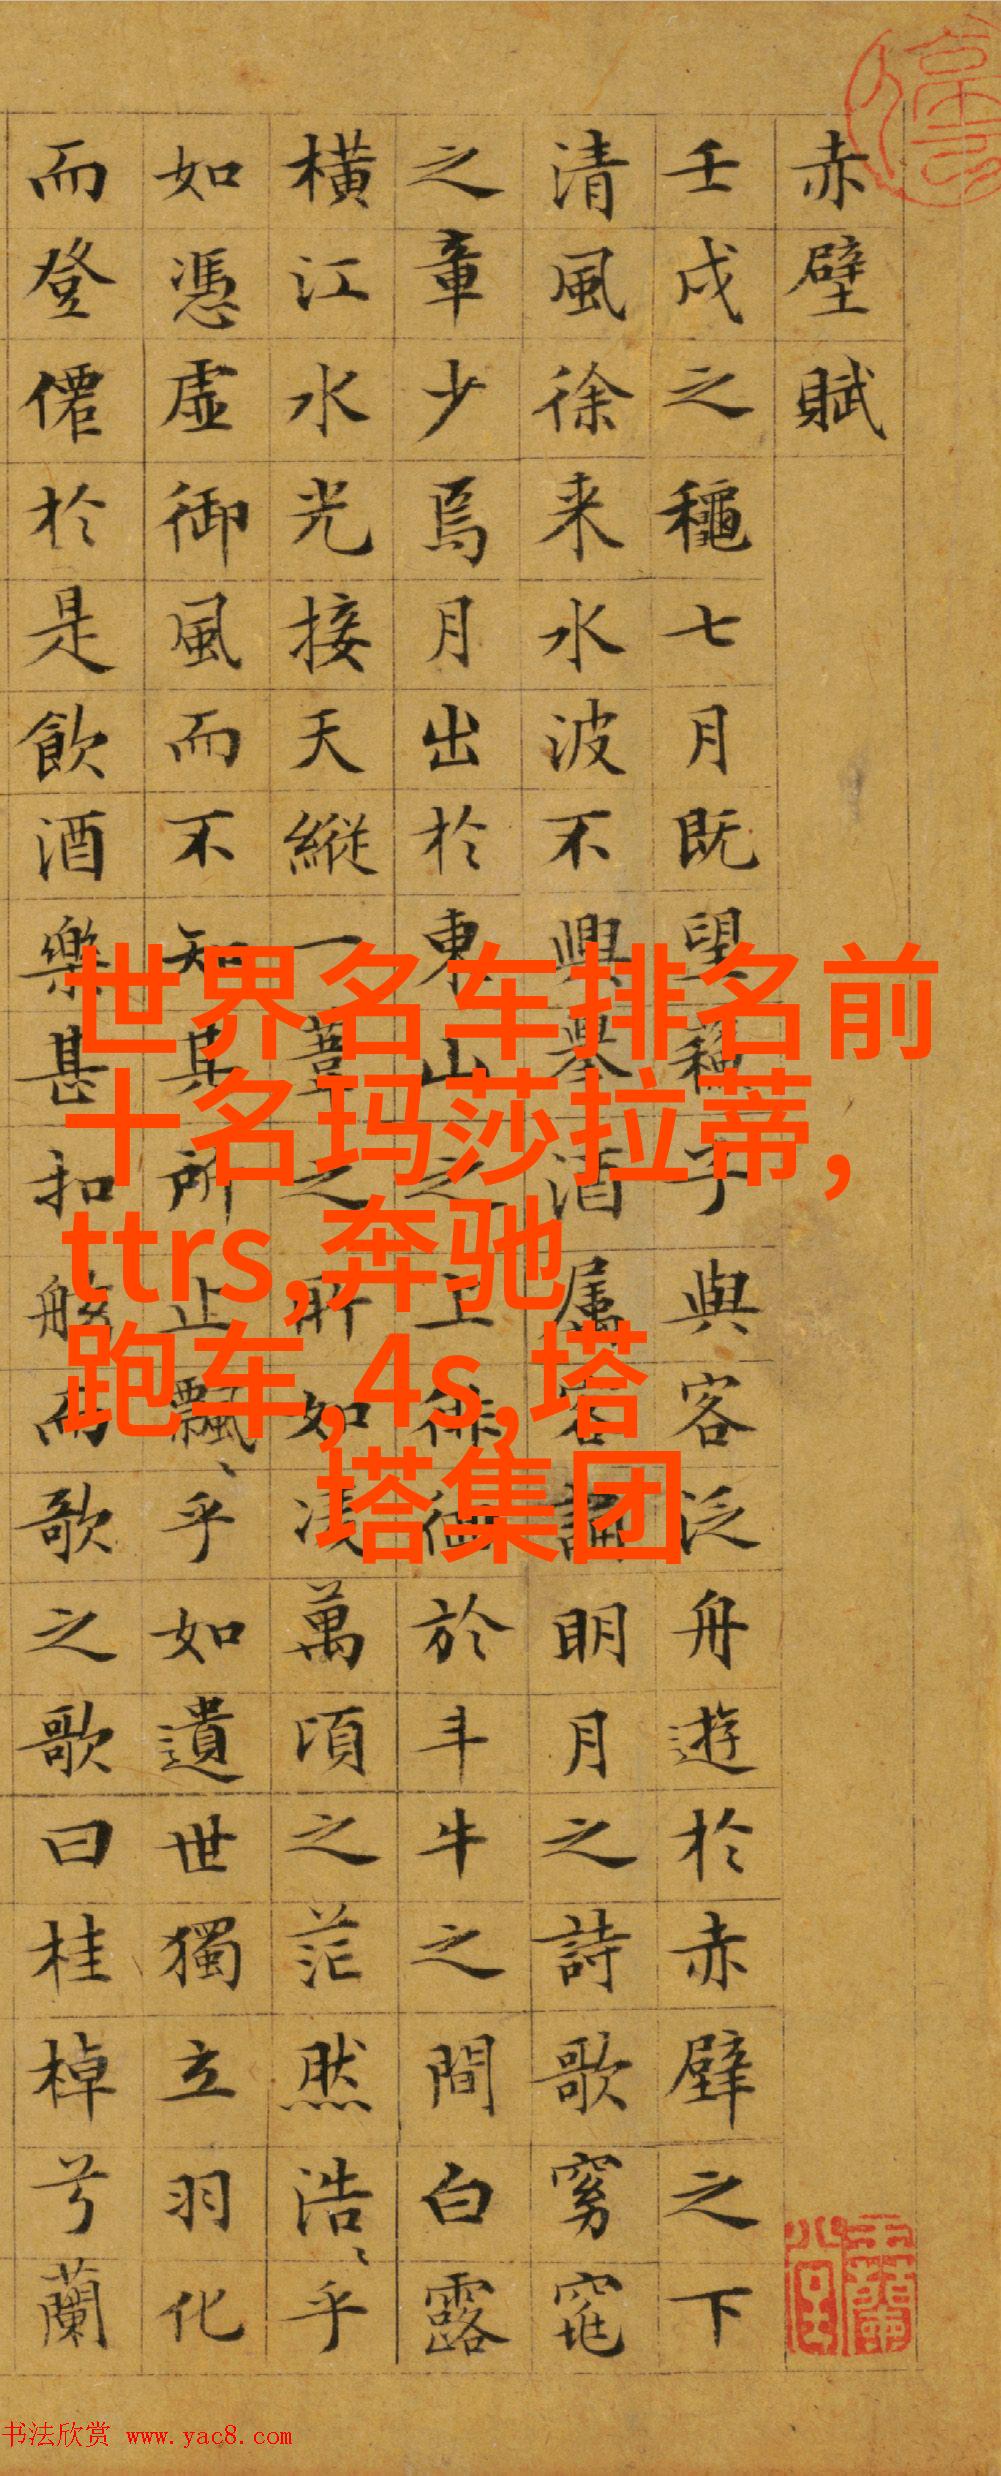 赤壁賦
壬戌之穐七月既望蘓子與客泛舟遊於赤壁之下
清風徐来水波不興舉酒属客誦明月之詩歌窈窕
之章少焉月出於東山之上徘徊於斗牛之間白露
橫江水光接天縱一葦之所如凌萬頃之茫然浩〻乎
如憑虛御風而不知其所止飄〻乎如遺世獨立羽化
而登僊於是飲酒樂甚扣舷而歌之歌曰桂棹兮蘭
世界名车排名前
十名玛莎拉蒂,
ttrs,奔驰
跑车,4s,塔
塔集团
书法欣赏 www.yac8.com